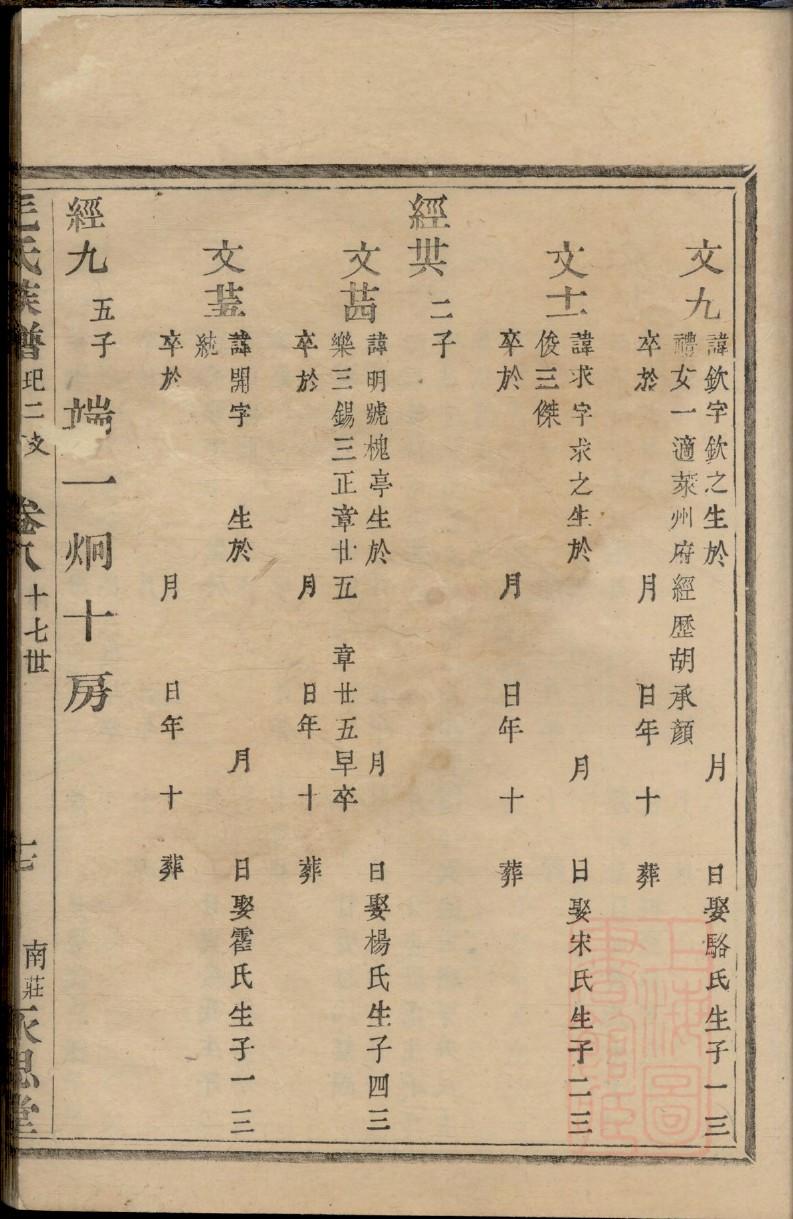 文九 諱欽字欽之生於 月 日娶駱氏生子一三
禮女一適萊州府經歷胡承顏
卒於 月 日年 十 葬
文十二 諱求字求之生於 月 日娶宋氏生子二三
俊三傑
卒於 月 日年 十 葬
經廿六 二子
文廿四 諱明號槐亭生於 月 日娶楊氏生子四三
樂三錫三正章廿五 章廿五早卒
卒於 月 日年 十 葬
文廿五 諱開字 生於 月 日娶霍氏生子一三
統
卒於 月 日年 十 葬
經九 五子 端一炯十房
毛氏族譜 玘二支 卷八 十七世 七 南莊永思堂
上海圖書館藏